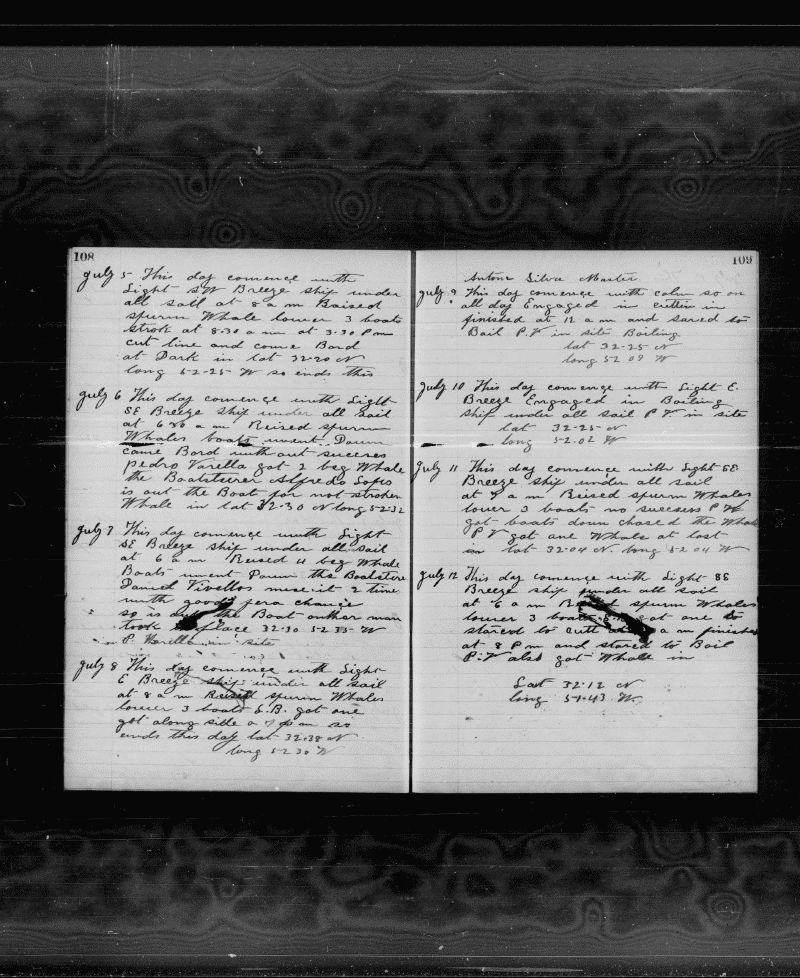 108
July 5 This day comence with
Light SW Breeze ship under
all sail at 8 a m Raised
spurm Whale lower 3 boats
strok at 8.30 a m at 3.30 P m
cut line and come Bord
at Dark in lat 32-20 N
long 52-25 W so ends this
July 6 This day comence with Light
SE Breeze ship under all sail
at 6 a m Reised spurm
Whales boats went Down
came Bord without succes
pedro Varella got 2 beg Whale
the Boatsteerer Alfredo Lopes
is out the Boat for not stroken
Whale in lat 32-30 N long 52-32
July 7 This day comence with Light
SE Breeze ship under all sail
at 6 a m Reised 4 beg Whale
Boats went Down the Boatstere
Daniel Tivellos mise it 2 time
with good chance
so is the Boat onther man
took Place 32-30 52-35 W
P. Varella in site
July 8 This day comence with Light
E Breeze ship under all sail
at 8 a m Reised spurm Whales
lower 3 boats S.B. got one
got along side a 7 p m so
ends this day lat 32-38 N
long 52 30 W
109
Antone Silva Master
July 9 This day comence with calm so on
all day Engaged in cuttin in
finished at 12 a m and stared to
Boil P.V in site Boiling
lat 32-25 N
long 52 09 W
July 10 This day comence with Light E.
Breeze Engaged in Boiling
ship under all sail P V in site
lat 32-25 N
long 52.02 W
July 11 This day comence with Light SE
Breeze ship under all sail
at a m Reised spurm Whales
lower 3 boats no success P V
got boats down chased the Whale
P V got one Whale at lost
in lat 32-04 N. long 52 04 W
July 12 This day comence with Light SE
Breeze ship under all sail
at 6 a m spurm Whales
lower 3 boats got one
stared to cutt a m finished
at 8 P m and stared to Boil
P.V also got Whale in
Lat 32-12 N
long 51-43 W.